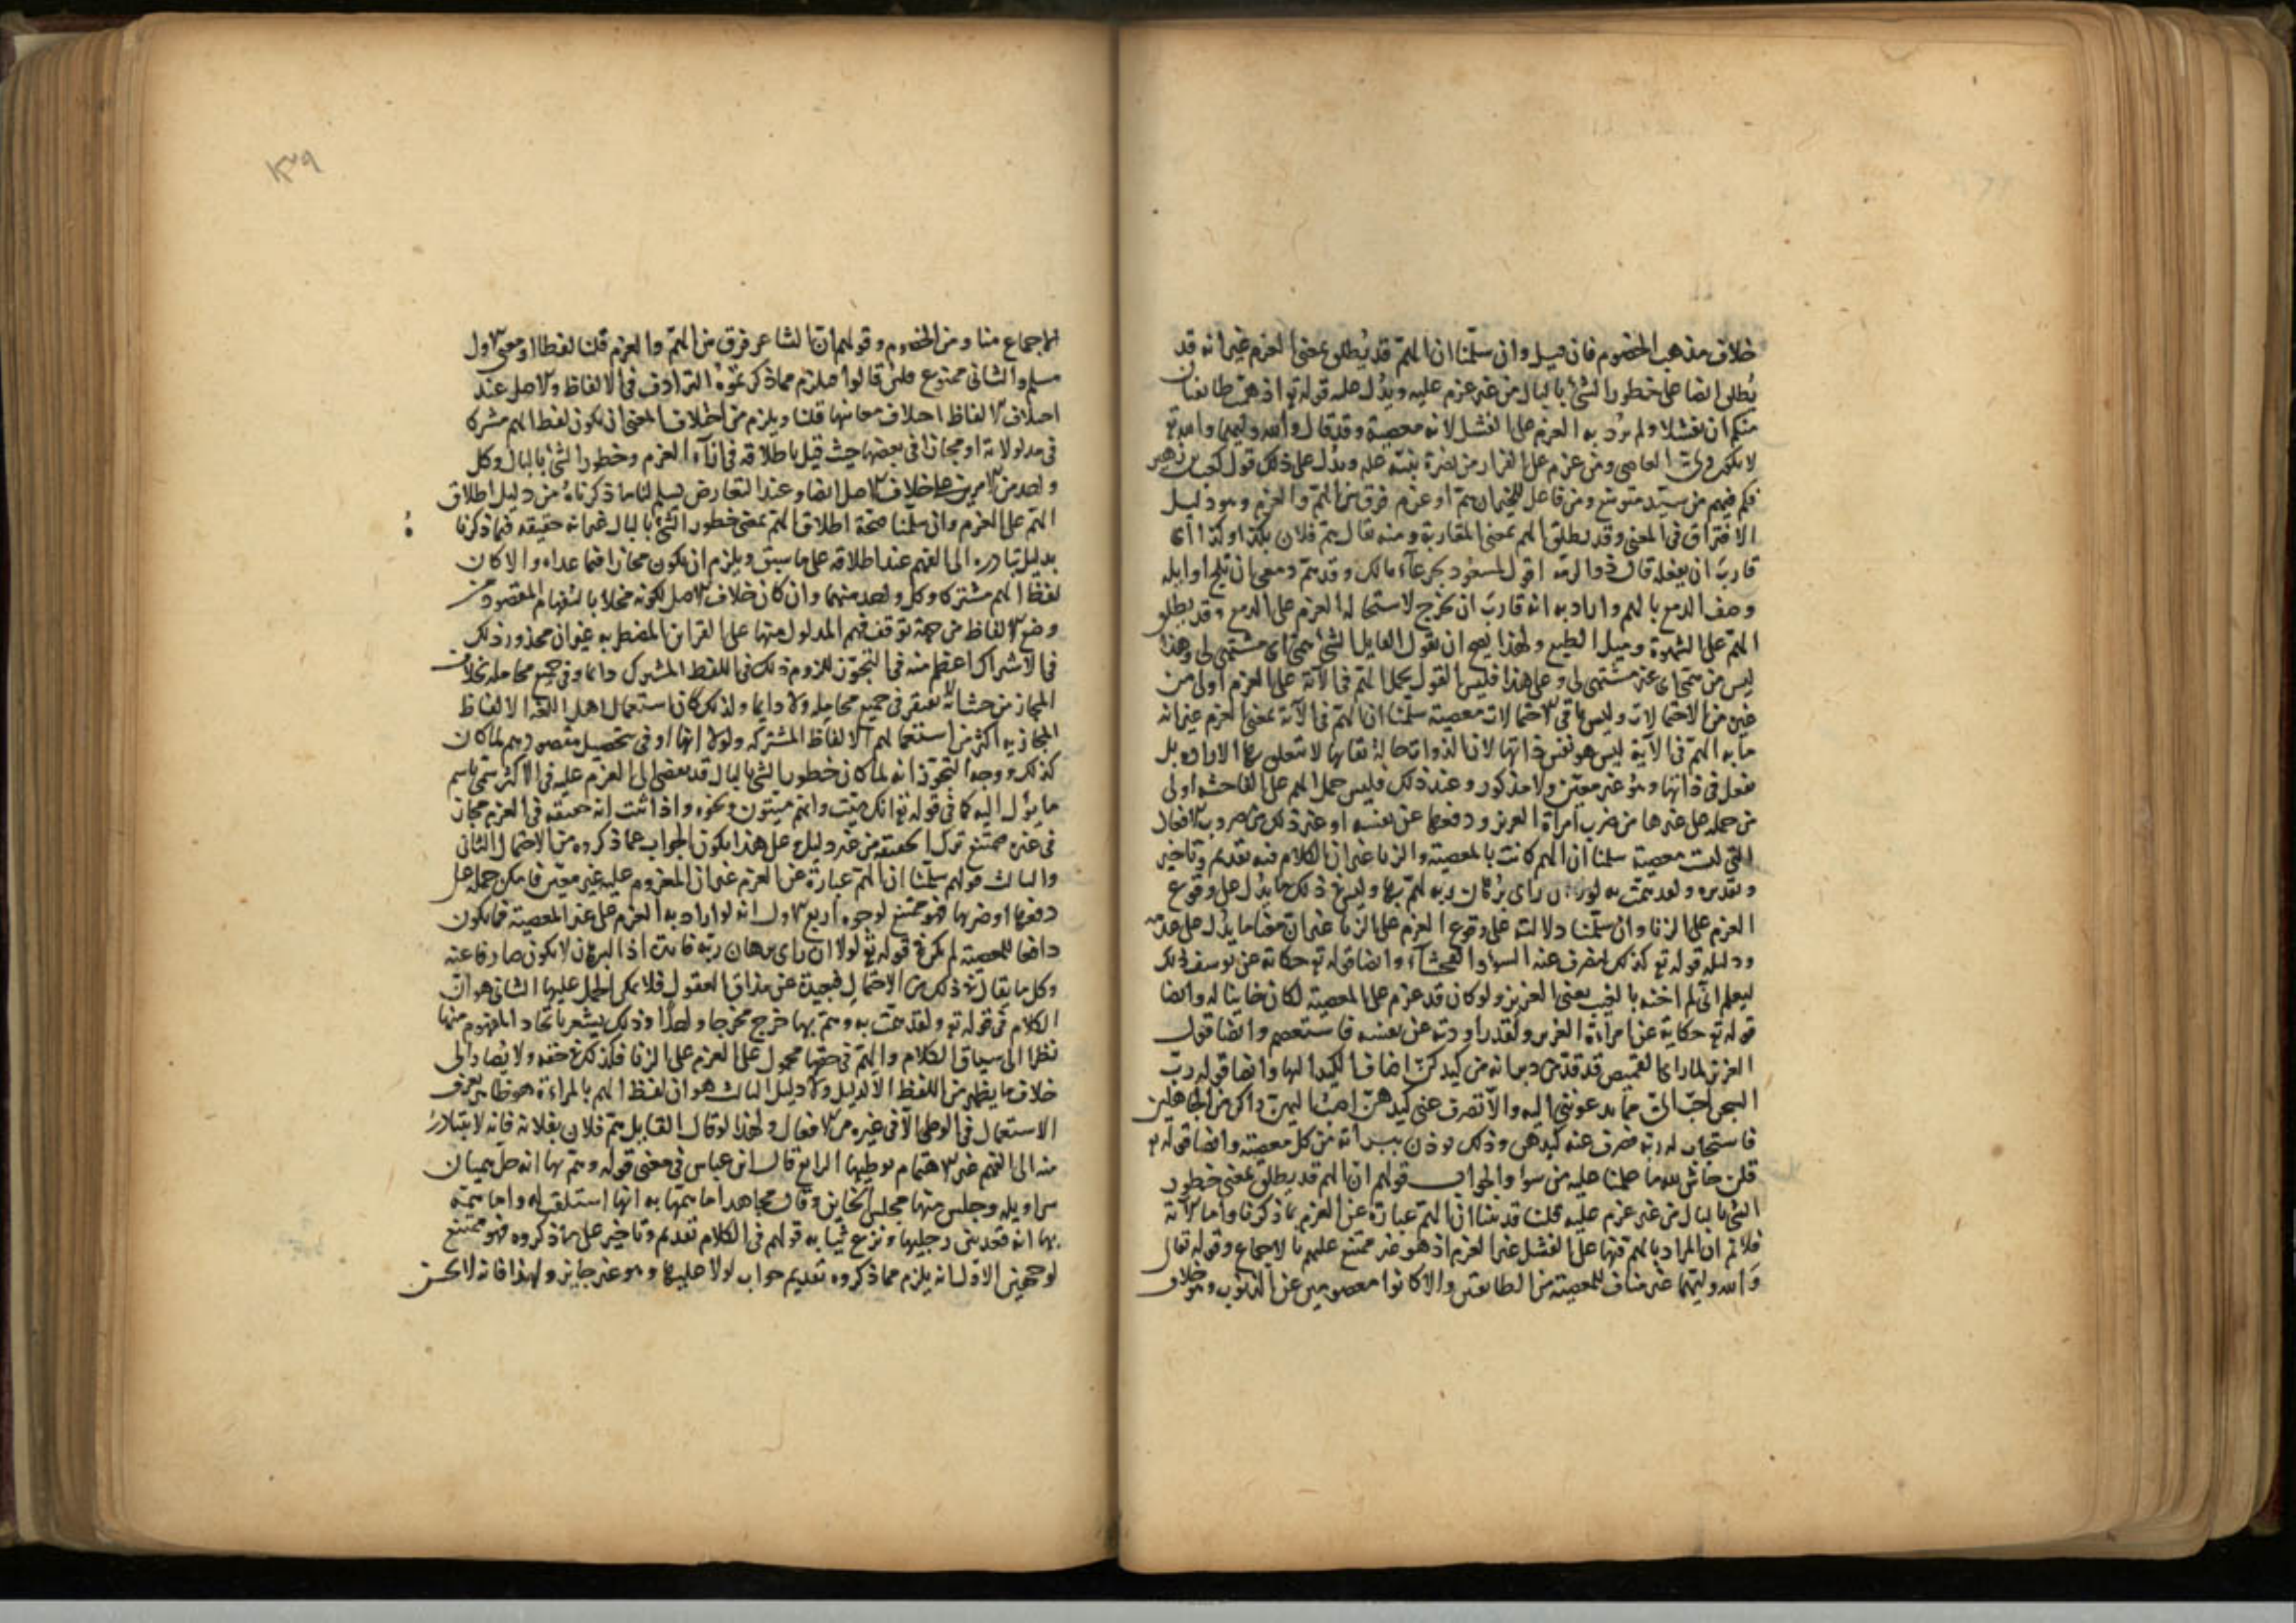 خلاف مذهب الخصوم فان قيل وان سلمنا ان الهمّ قد يُطلق بمعنى العزم غير انه قد
يُطلق ايضا على خطور الشئ بالبال من غير عزم عليه ويدُل عليه قوله تع اذ همّت طايفتان
منكم ان تفشلا ولم يُرد به العزم على الفشل لانه معصية وقد قال والله وليهما والله تع
لا يكون ولىّ العاصى ومن عزم على الفرار من نصرة نبيّه عليه ويدُل على ذلك قول كعب بن زهير
فكم فيهم من سيّد متوسّع ومن فاعل للخير ان همّ او عزم فرق بين الهمّ والعزم وهو دليل
الافتراق فى المعنى وقد يطلق الهم بمعنى المقاربة ومنه يقال همّ فلان بكذا وكذا اى
قاربَ ان يفعله قال ذو الرمّه اقول لمسعود بجرعآء مالك وقد همّ دمعى ان تلج اوايله
وصف الدمع بالهم واراد به انه قاربَ ان يخرج لاستحالة العزم على الدمع وقد يطلق
الهمّ على الشهوة وميل الطبع ولهذا يصح ان يقول القايل لشئ همّى اى مشتهى لى وهذا
ليس من همّى اى غير مشتهى لى وعلى هذا فليس القول بحمل الهمّ فى الآية على العزم اولى من
غيره من الاحتمالات وليس باقى الاحتمالات معصية سلمنا ان الهمّ فى الآية بمعنى العزم غير انه
ما به الهمّ فى الآية ليس هو نفس ذاتها لان الذوات حالة بقايها لا تتعلق بها الارادة بل
بفعل فى ذاتها وهُو غير معيّن ولا مذكور وعند ذلك فليس حمل الهم على الفاحشه اولى
من حمله على غيرها من ضرب امرأة العزيز ودفعها عن نفسه او غير ذلك من ضروب الافعال
التى ليست معصية سلمنا ان الهم كانت بالمعصية والزنا غير ان الكلام فيه تقديم وتاخير
وتقديره ولقد همّت به لولا ان راى برهان ربه لهمّ بها وليس فى ذلك ما يدُل على وقوع
العزم على الزنا وان سلّمنا دلالته على وقوع العزم على الزنا غير ان معنا ما يدُل على عدمه
ودليله قوله تع كذلك لنصرف عنه السوء والفحشآء وايضا قوله تع حكاية عن يوسف ذلك
ليعلم انى لم اخنه بالغيب يعنى العزيز ولو كان قد عزم على المعصية لكان خاينا له وايضا
قوله تع حكاية عن امرأة العزيز ولقد راودته عن نفسه فاستعصم وايضا قول
العزيز لما راى القميص قد قدّ من دبر انه من كيدكنّ اضاف الكيد اليها وايضا قوله ربّ
السجن احبّ الىّ مما يدعوننى اليه والاّ تصرف عنى كيدهنّ اصبُ اليهن واكن من الجاهلين
فاستجاب له ربه فصرف عنه كيدهن وذلك يوذن ببرآته من كل معصية وايضا قوله تع
قلن حاش لله ما علمنا عليه من سوء والجواب قولهم ان الهم قد يطلق بمعنى خطور
الشئ بالبال من غير عزم عليه قلنا قد بينا ان الهمّ عبارة عن العزم بما ذكرنا واما الآية
فلا نم ان المراد بالهم فيها على الفشل غير العزم اذ هو غير ممتنع عليهم بالاجماع وقوله تعالى
والله وليهما غير مناف للمعصية من الطايفتين والا كانوا معصومين عن الذنوب وهو خلاف
١٣٩
الاجماع منا ومن الخصوم وقولهم ان الشاعر فرق بين الهمّ والعزم قلنا لفظا او معنى الاول
مسلم والثانى ممنوع فلئن قالوا يلزم مما ذكرتموهُ الترادف فى الالفاظ والاصل عند
اختلاف الالفاظ اختلاف معانيها قلنا ويلزم من اختلاف المعنى ان يكون لفظ الهم مشتركا
فى مدلولاته او مجازا فى بعضها حيث قيل باطلاقه بازآء العزم وخطور الشئ بالبال وكل
واحد من الامرين على خلاف الاصل ايضا وعند التعارض يسلم لنا ما ذكرناهُ من دليل اطلاق
الهمّ على العزم وان سلّمنا صحة اطلاق الهمّ بمعنى خطور الشئ بالبال غير انه حقيقه فيما ذكرنا
بدليل تبادره الى الفهم عند اطلاقه على ما سبق ويلزم ان يكون مجازا فيما عداه والا كان
لفظ الهم مشتركا وكل واحد منهما وان كان خلاف الاصل لكونه مخلا بالتفهام المقصود من
وضع الالفاظ من جهة توقف فهم المدلول منها على القراين المضطربه غير ان محذور ذلك
فى الاشتراك اعظم منه فى التجوّز للزوم ذلك فى اللفظ المشترك دايما وفى جميع محامله بخلاف
المجاز من حيث انه لا يفتقر فى جميع محامله ولا دايما ولذلك كان استعمال اهل اللغة الالفاظ
المجازيه اكثر من استعمالهم الالفاظ المشتركه ولولا انها اوفى بتحصيل مقصودهم لما كان
كذلك ووجه التجوّز انه لما كان خطور الشئ بالبال قد يفضى الى العزم عليه فى الاكثر سمّى باسم
ما يؤل اليه كما فى قوله تع انك ميّت وانهم ميتون ونحوه واذا ثبت انه حقيقه فى العزم مجاز
فى غيره ممتنع ترك الحقيقه من غير دليل وعلى هذا يكون الجواب عما ذكروه من الاحتمال الثانى
والثالث قولهم سلّمنا ان الهمّ عبارة عن العزم غير ان المعزوم عليه غير معيّن فامكن حمله على
دفعها او ضربها فهو ممتنع لوجوه اربع الاول انه لو اراد به العزم على غير المعصية مما يكون
دافعا للمعصية لم يكن فى قوله تع لولا ان راى برهان ربّه فايدة اذ البرهان لا يكون صارفا عنه
وكل ما يقال فى ذلك من الاحتمال فبعيدة عن مذاق العقول فلا يمكن الحمل عليها الثانى هو ان
الكلام فى قوله تع ولقد همّت به وهمّ بها خرج مخرجا واحدًا وذلك يشعر باتحاد المفهوم منها
نظرا الى سياق الكلام والهمّ فى حقها محمول على العزم على الزنا فكذلك فى حقه ولا يُصار الى
خلاف ما يظهر من اللفظ الا لدليل ولا دليل الثالث هو ان لفظ الهم بالمراءة هو ظاهر بعرف
الاستعمال فى الوطى لا فى غيره من الافعال ولهذا لو قال القايل همّ فلان بفلانة فانه لا يتبادرُ
منه الى الفهم غير الاهتمام بوطيها الرابع قال ابن عباس فى معنى قوله وهمّ بها انه حلّ هميان
سراويله وجلس منها مجلس الخاين وقال مجاهد اما همّها به انها استلقت له واما همّه
بها انه قعد بين رجليها ونزع ثيابه قولهم فى الكلام تقديم وتاخير على ما ذكروه فهو ممتنع
لوجهين الاول انه يلزم مما ذكروه تقديم جواب لولا عليها وهو غير جايز ولهذا فانه لا يحسن